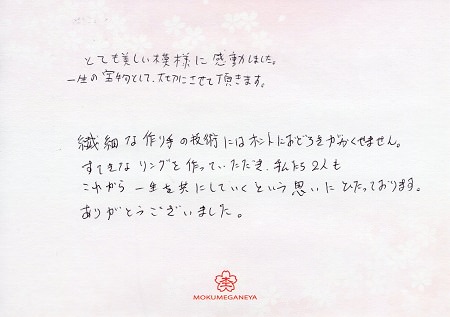 とても美しい模様に感動しました。
一生の宝物として、大切にさせて頂きます。
繊細な作り手の技術にはホントにおどろきがかくせません。
すてきなリングを作っていただき、私たち2人も
これから一生を共にしていくという思いにひたっております。
ありがとうございました。
MOKUMEGANEYA